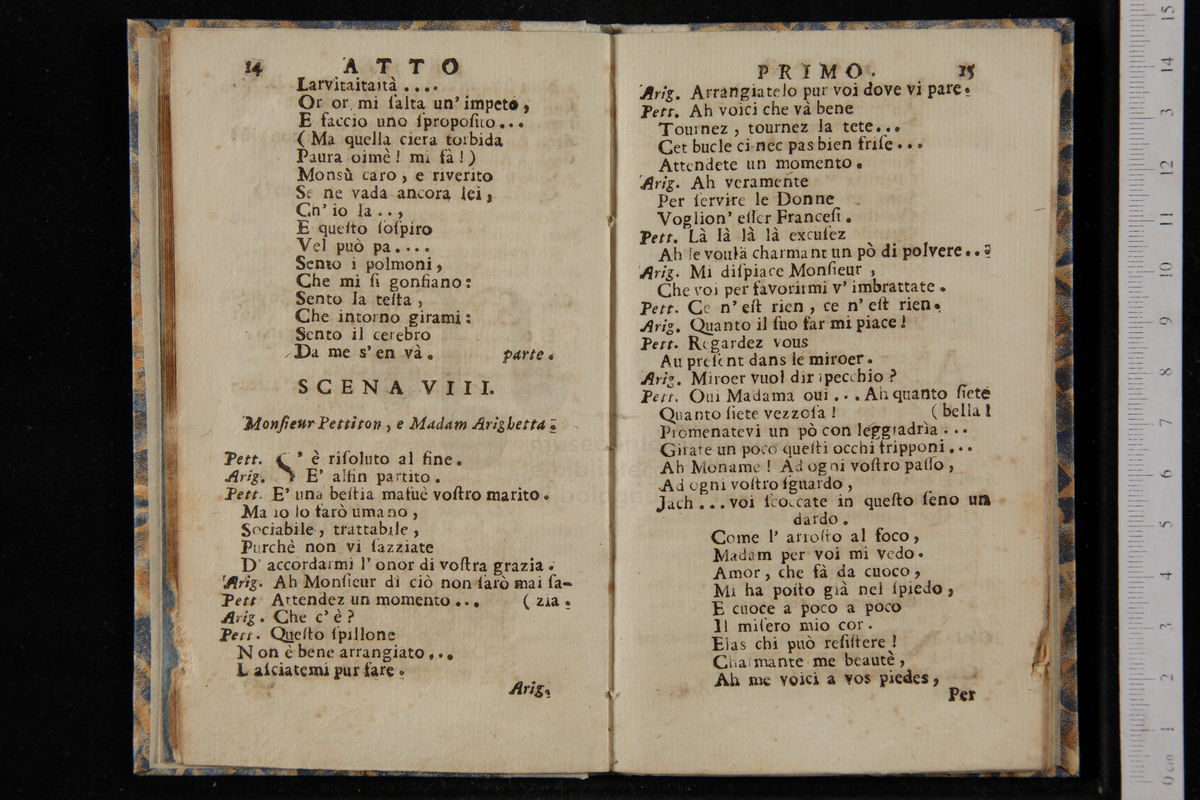 14 ATTO
Larvitaitaità ....
Or or mi ſalta un' impeto,
E faccio uno ſpropoſito...
(Ma quella ciera torbida
Paura oimè! mi fà!)
Monsù caro, e riverito
Se ne vada ancora lei,
Ch' io la ..,
E queſto ſoſpiro
Vel può pa....
Sento i polmoni,
Che mi ſi gonfiano:
Sento la teſta,
Che intorno girami:
Sento il cerebro
Da me s' en và. parte.
SCENA VIII.
Monſieur Pettiton, e Madam Arighetta.
Pett. S' è riſoluto al fine.
Arig. E' alfin partito.
Pett. E' una beſtia mafuè voſtro marito.
Ma io lo farò umano,
Sociabile, trattabile,
Purchè non vi ſazziate
D' accordarmi l' onor di voſtra grazia.
Arig. Ah Monſieur di ciò non ſarò mai ſa-
Pett Attendez un momento... (zia.
Arig. Che c' è?
Pett. Queſto ſpillone
Non è bene arrangiato...
Laſciatemi pur fare.
Arig.
PRIMO. 15
Arig. Arrangiatelo pur voi dove vi pare.
Pett. Ah voici che và bene
Tournez, tournez la tete...
Cet bucle ci nec pas bien friſe...
Attendete un momento.
Arig. Ah veramente
Per ſervire le Donne
Voglion' eſſer Franceſi.
Pett. Là là là là excuſez
Ah le voulà charmant un pò di polvere...
Arig. Mi diſpiace Monſieur,
Che voi per favorirmi v' imbrattate.
Pett. Ce n' eſt rien, ce n' eſt rien.
Arig. Quanto il ſuo far mi piace!
Pett. Regardez vous
Au preſent dans le miroer.
Arig. Miroer vuol dir ſpecchio?
Pett. Oui Madama oui... Ah quanto ſiete
Quanto ſiete vezzoſa! (bella!
Promenatevi un pò con leggiadrìa...
Girate un poco queſti occhi fripponi...
Ah Moname! Ad ogni voſtro paſſo,
Ad ogni voſtro ſguardo,
Jach... voi ſcoccate in queſto ſeno un
dardo.
Come l' arroſto al foco,
Madam per voi mi vedo.
Amor, che fà da cuoco,
Mi ha poſto già nel ſpiedo,
E cuoce a poco a poco
Il miſero mio cor.
Elas chi può reſiſtere!
Charmante me beautè,
Ah me voici a vos piedes,
Per